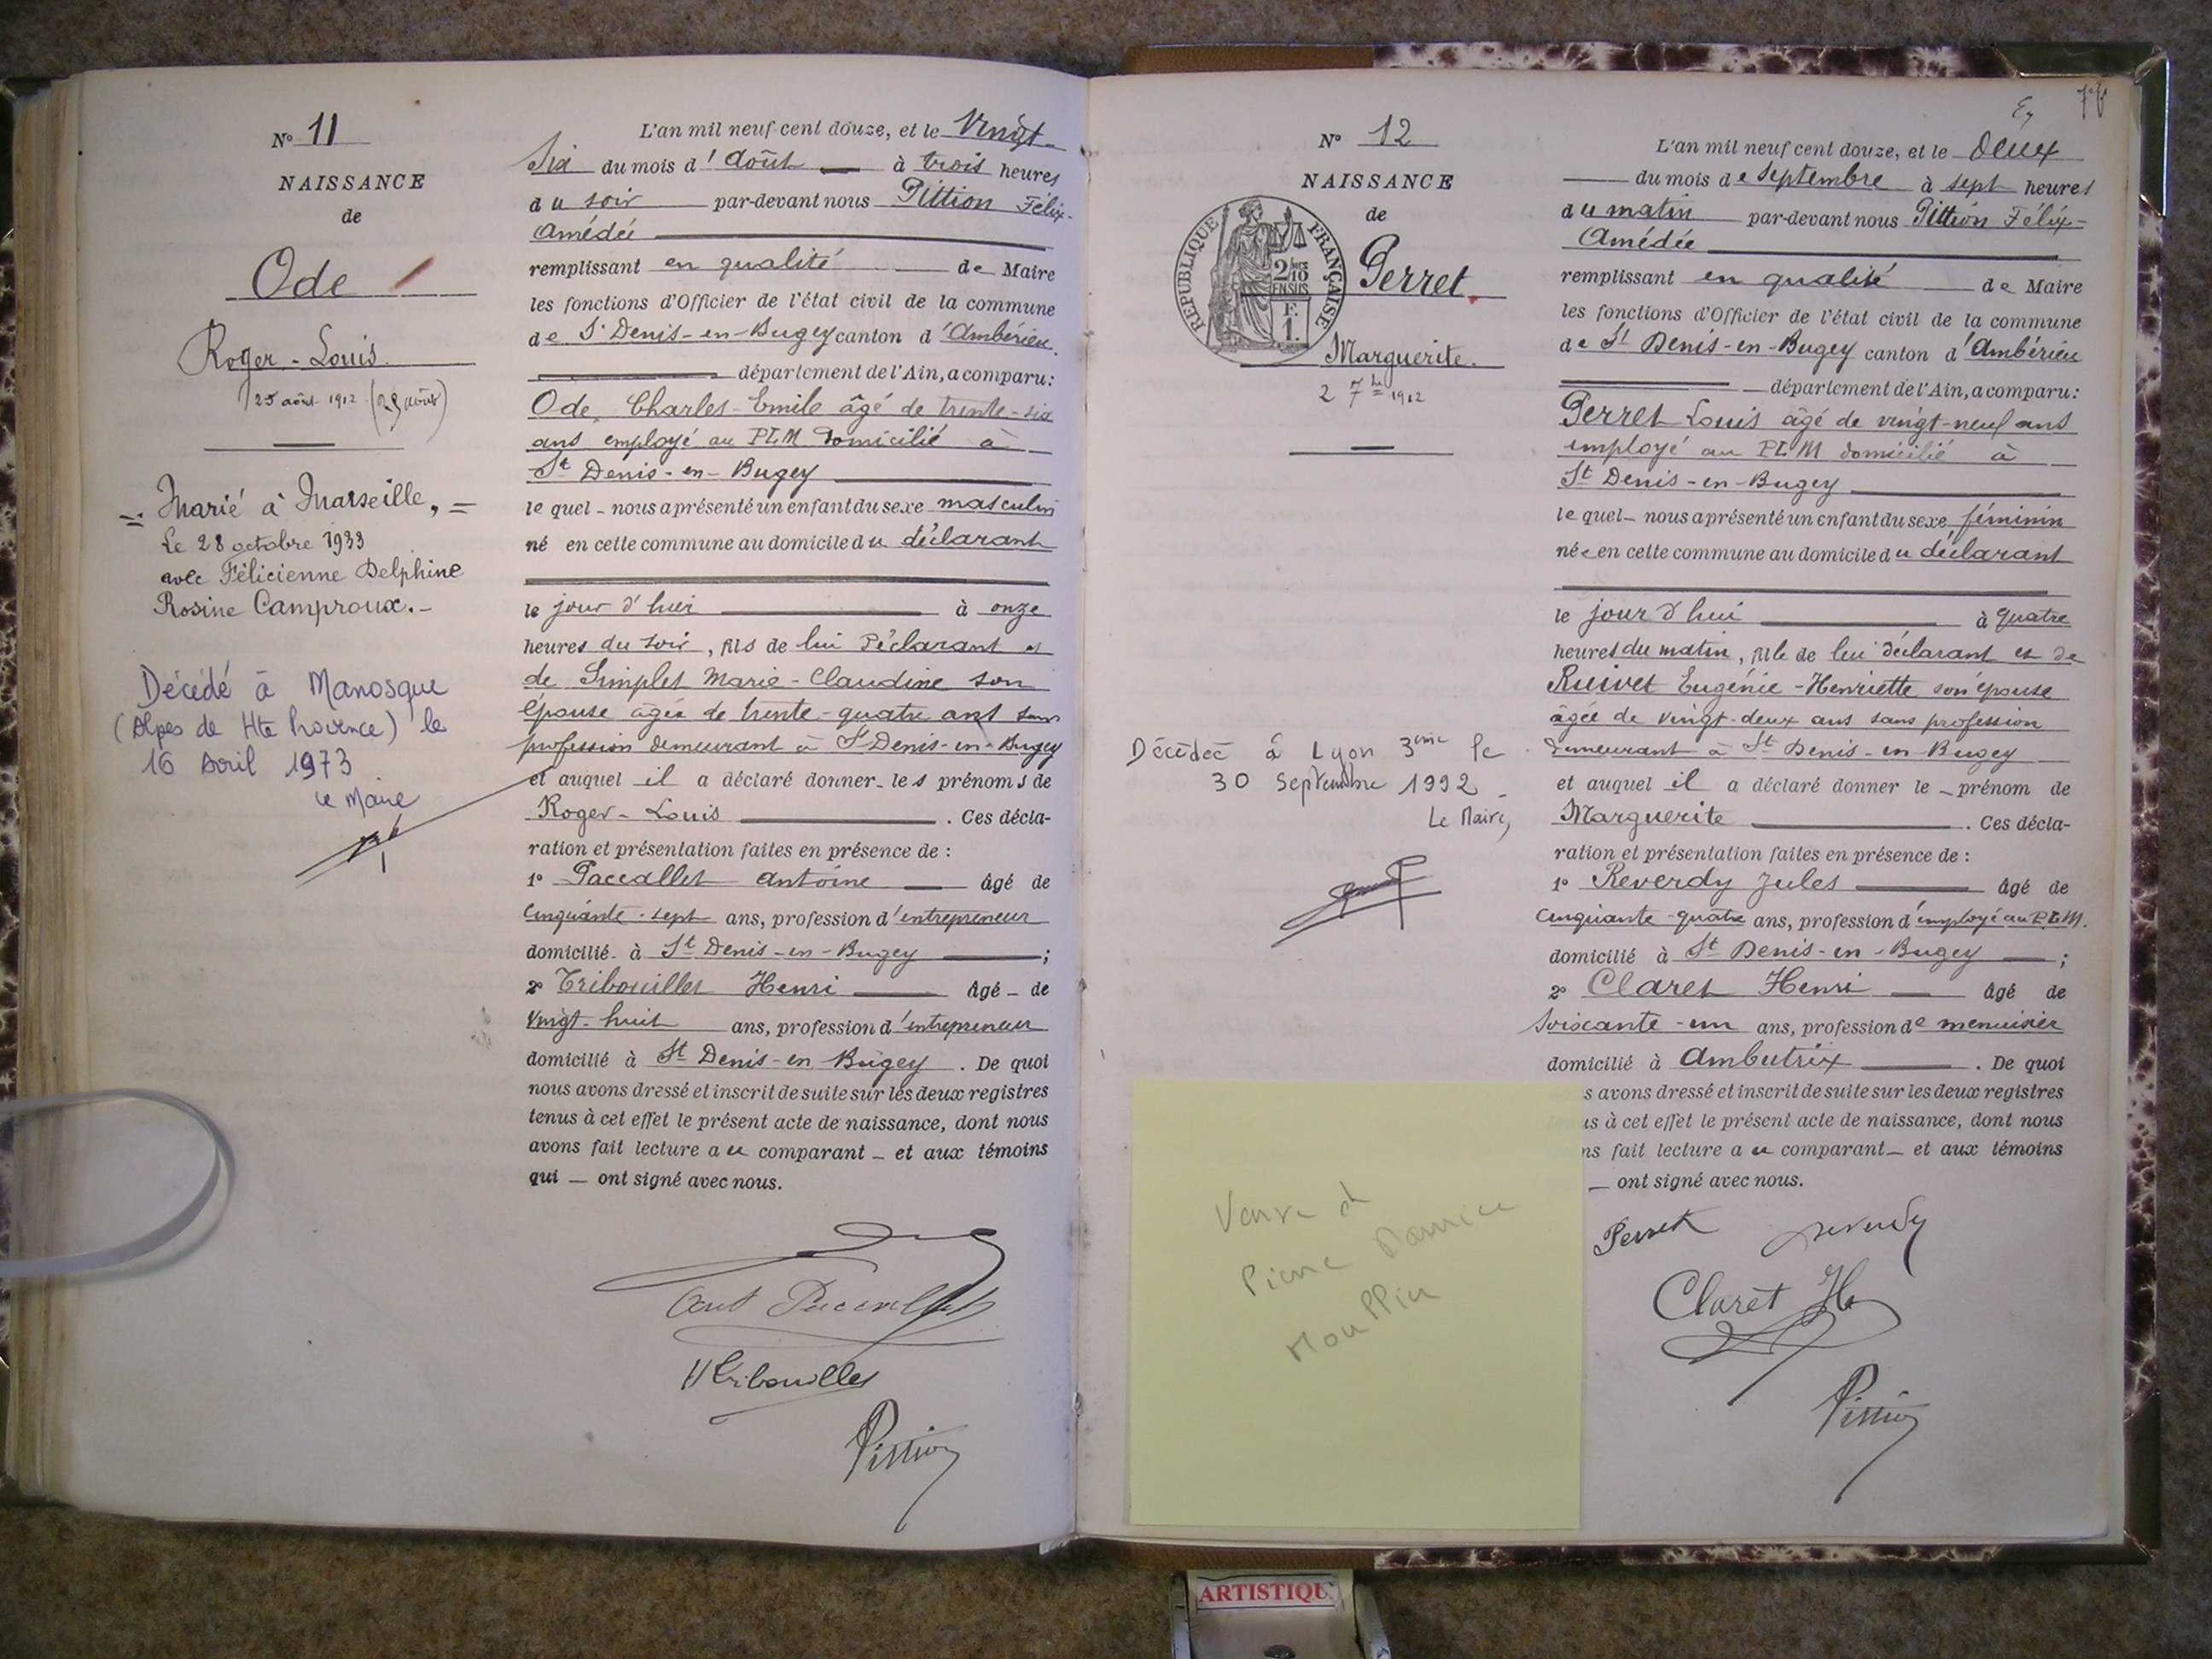 N° 11
NAISSANCE
de
Ode
Roger-Louis
25 août 1912 (25 août)
Marié à Marseille,
Le 28 octobre 1933
avec Félicienne Delphine
Rosine Camproux.-
Décédé à Manosque
(Alpes de Hte Provence) le
16 Avril 1973
Le Maire
L'an mil neuf cent douze, et le Vingt-
Six du mois d'Août à trois heures
du soir par-devant nous Pittion Félix-
Amédée
remplissant en qualité de Maire
les fonctions d'Officier de l'état civil de la commune
de St Denis-en-Bugey canton d'Ambérieu
département de l'Ain, a comparu:
Ode, Charles-Emile âgé de trente-six
ans employé au PLM domicilié à
St Denis-en-Bugey
le quel - nous a présenté un enfant du sexe masculin
né en cette commune au domicile du déclarant
le jour d'hier à onze
heures du soir, fils de lui déclarant et
de Simplet Marie-Claudine son
épouse âgée de trente-quatre ans sans
profession demeurant à St Denis-en-Bugey
et auquel il a déclaré donner les prénoms de
Roger-Louis . Ces décla-
ration et présentation faites en présence de :
1° Paccallet Antoine âgé de
cinquante-sept ans, profession d'entrepreneur
domicilié à St Denis-en-Bugey ;
2° Tribouillet Henri âgé de
vingt-huit ans, profession d'entrepreneur
domicilié à St Denis-en-Bugey . De quoi
nous avons dressé et inscrit de suite sur les deux registres
tenus à cet effet le présent acte de naissance, dont nous
avons fait lecture au comparant - et aux témoins
qui - ont signé avec nous.
HTribouillet
Pittion
76
N° 12
NAISSANCE
de
RÉPUBLIQUE FRANÇAISE
Perret
Marguerite.
2 7bre 1912
Décédée à Lyon 3ème le
30 Septembre 1992
Le Maire,
L'an mil neuf cent douze, et le Deux
du mois de Septembre à sept heures
du matin par-devant nous Pittion Félix-
Amédée
remplissant en qualité de Maire
les fonctions d'Officier de l'état civil de la commune
de St Denis-en-Bugey canton d'Ambérieu
département de l'Ain, a comparu:
Perret Louis âgé de vingt-neuf ans
employé au PLM domicilié à
St Denis-en-Bugey
le quel - nous a présenté un enfant du sexe féminin
née en cette commune au domicile du déclarant
le jour d'hui à quatre
heures du matin, fille de lui déclarant et de
Ruivet Eugénie-Henriette son épouse
âgée de vingt-deux ans sans profession
demeurant à St Denis-en-Bugey
et auquel il a déclaré donner le prénom de
Marguerite . Ces décla-
ration et présentation faites en présence de :
1° Reverdy Jules âgé de
cinquante-quatre ans, profession d'employé au P.L.M.
domicilié à St Denis-en-Bugey ;
2° Claret Henri âgé de
soixante-un ans, profession de menuisier
domicilié à Ambutrix . De quoi
s avons dressé et inscrit de suite sur les deux registres
us à cet effet le présent acte de naissance, dont nous
ns fait lecture au comparant - et aux témoins
- ont signé avec nous.
Perret Reverdy
Claret H
Pittion
Veuve de
Pierre
ARTISTIQU